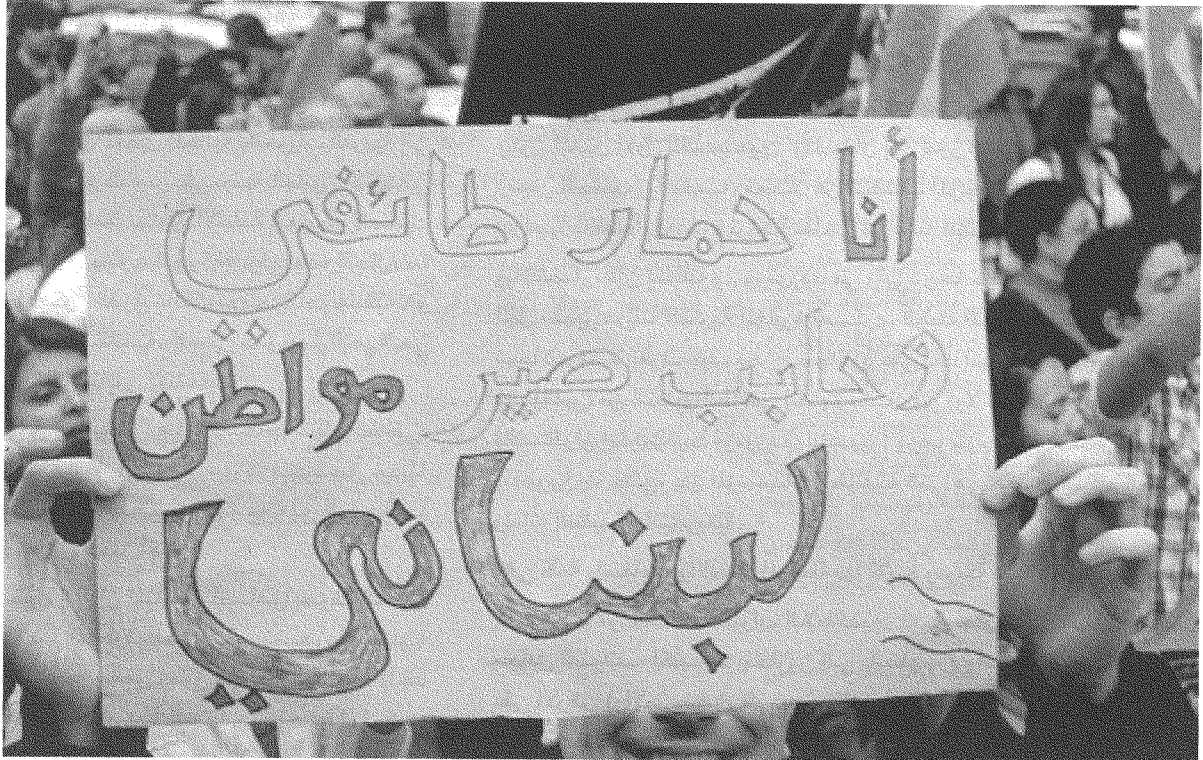 أنا حمار طائفي
وحابب صير مواطن
لبناني